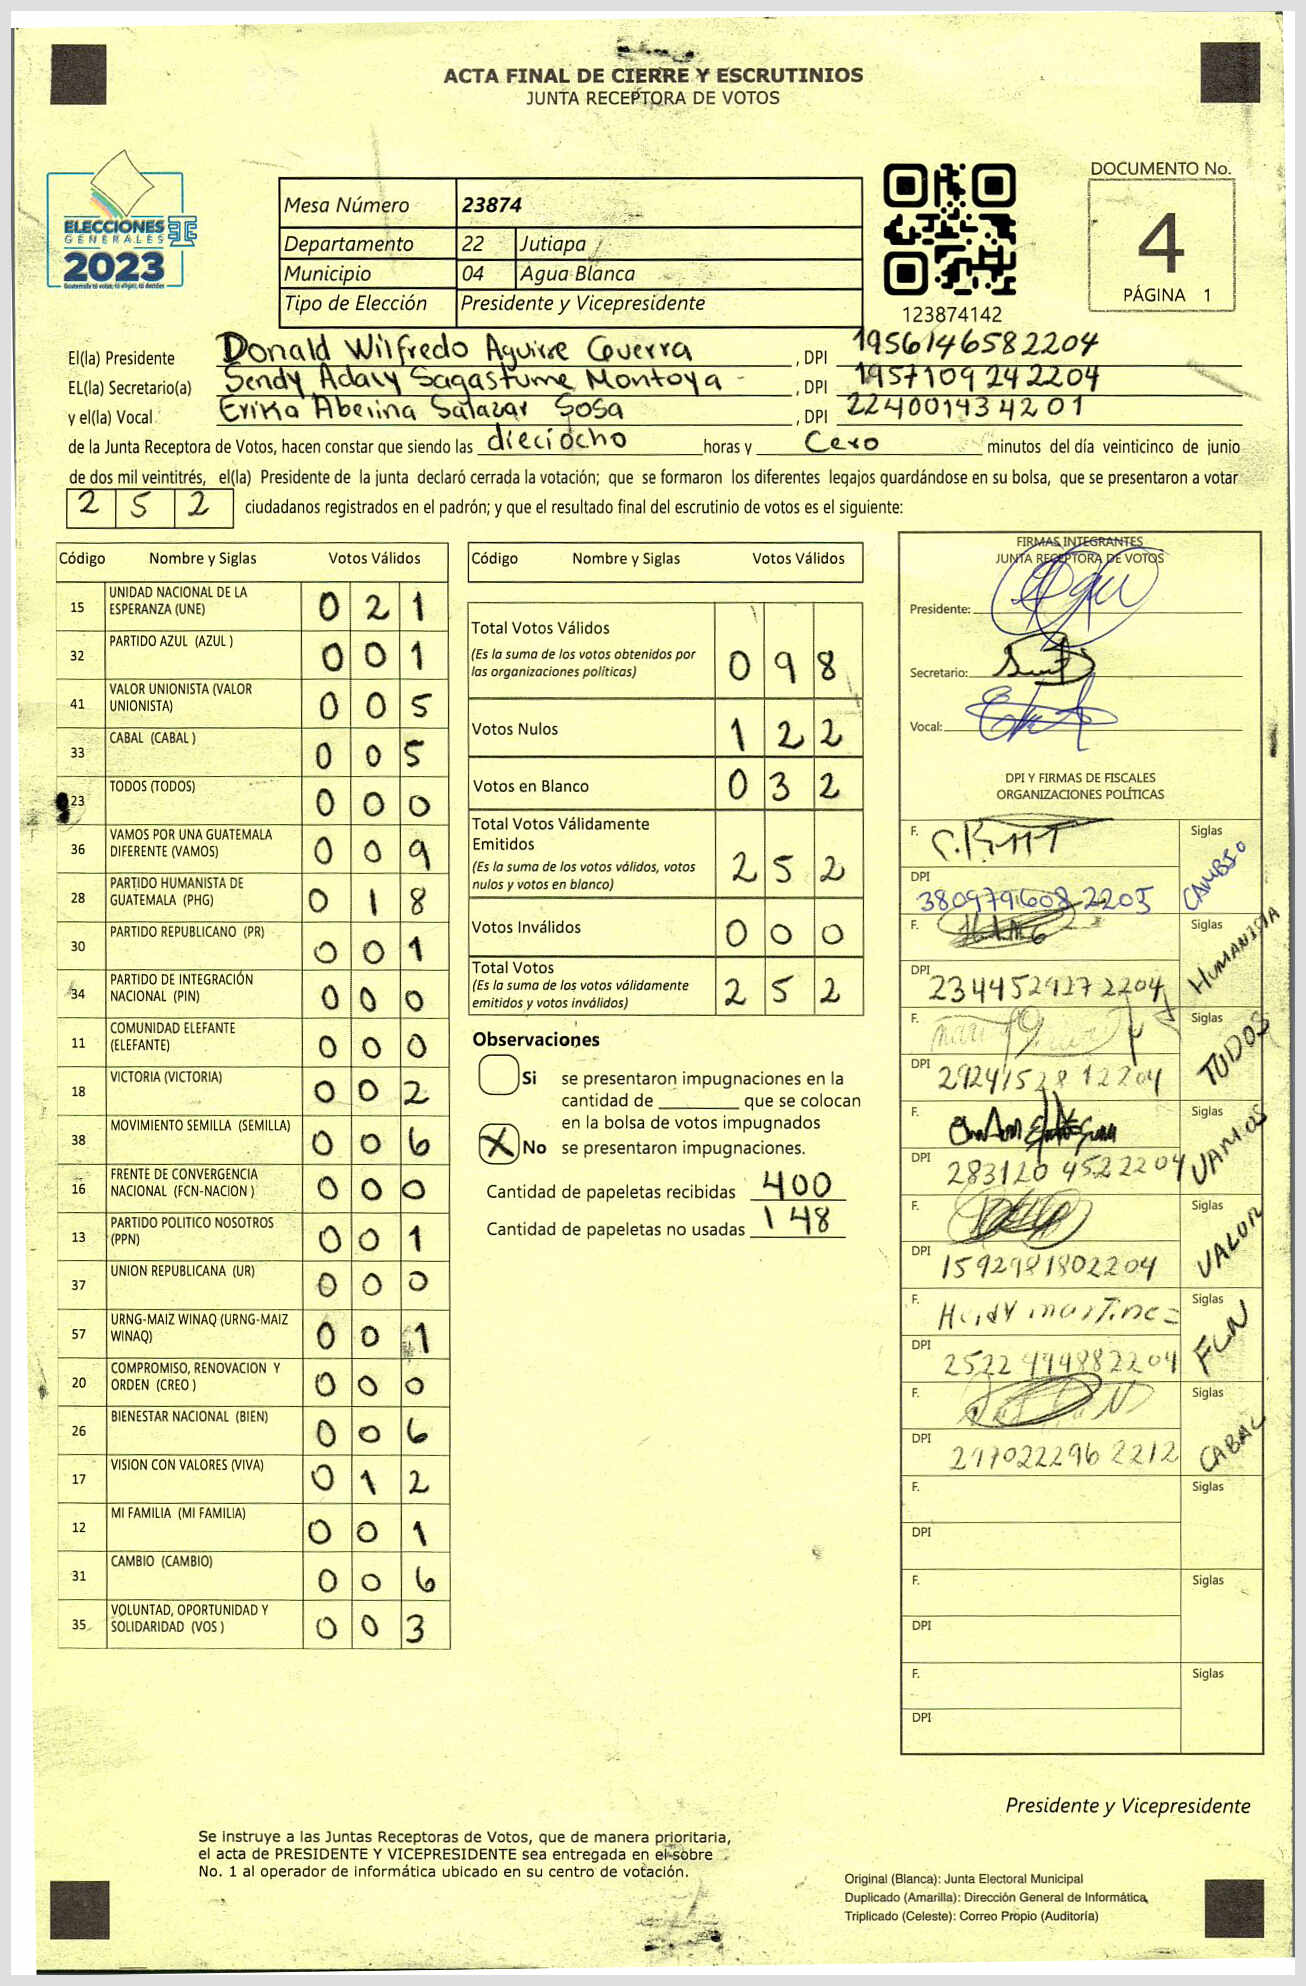 ACTA FINAL DE CIERRE Y ESCRUTINIOS
JUNTA RECEPTORA DE VOTOS
ELECCIONES
GENERALES
2023
Mesa Número 23874
Departamento 22 Jutiapa
Municipio 04 Agua Blanca
Tipo de Elección Presidente y Vicepresidente
123874142
DOCUMENTO No.
4
PÁGINA 1
El(la) Presidente Donald Wilfredo Aguirre Guerra , DPI 1956146582204
EL(la) Secretario(a) Sendy Adaly Sagastume Montoya , DPI 1957109242204
y el(la) Vocal Erika Abelina Salazar Sosa , DPI 2240014342201
de la Junta Receptora de Votos, hacen constar que siendo las dieciocho horas y Cero minutos del día veinticinco de junio
de dos mil veintitrés, el(la) Presidente de la junta declaró cerrada la votación; que se formaron los diferentes legajos guardándose en su bolsa, que se presentaron a votar
252 ciudadanos registrados en el padrón; y que el resultado final del escrutinio de votos es el siguiente:
Código Nombre y Siglas Votos Válidos
15 UNIDAD NACIONAL DE LA ESPERANZA (UNE) 021
32 PARTIDO AZUL (AZUL ) 001
41 VALOR UNIONISTA (VALOR UNIONISTA) 005
33 CABAL (CABAL ) 005
23 TODOS (TODOS) 000
36 VAMOS POR UNA GUATEMALA DIFERENTE (VAMOS) 009
28 PARTIDO HUMANISTA DE GUATEMALA (PHG) 018
30 PARTIDO REPUBLICANO (PR) 001
34 PARTIDO DE INTEGRACIÓN NACIONAL (PIN) 000
11 COMUNIDAD ELEFANTE (ELEFANTE) 000
18 VICTORIA (VICTORIA) 002
38 MOVIMIENTO SEMILLA (SEMILLA) 006
16 FRENTE DE CONVERGENCIA NACIONAL (FCN-NACION ) 000
13 PARTIDO POLITICO NOSOTROS (PPN) 001
37 UNION REPUBLICANA (UR) 000
57 URNG-MAIZ WINAQ (URNG-MAIZ WINAQ) 001
20 COMPROMISO, RENOVACION Y ORDEN (CREO ) 000
26 BIENESTAR NACIONAL (BIEN) 006
17 VISION CON VALORES (VIVA) 012
12 MI FAMILIA (MI FAMILIA) 001
31 CAMBIO (CAMBIO) 006
35 VOLUNTAD, OPORTUNIDAD Y SOLIDARIDAD (VOS ) 003
Código Nombre y Siglas Votos Válidos
Total Votos Válidos 098
(Es la suma de los votos obtenidos por
las organizaciones políticas)
Votos Nulos 122
Votos en Blanco 032
Total Votos Válidamente
Emitidos 252
(Es la suma de los votos válidos, votos
nulos y votos en blanco)
Votos Inválidos 000
Total Votos 252
(Es la suma de los votos válidamente
emitidos y votos inválidos)
Observaciones
Si se presentaron impugnaciones en la
cantidad de ________ que se colocan
en la bolsa de votos impugnados
X No se presentaron impugnaciones.
Cantidad de papeletas recibidas 400
Cantidad de papeletas no usadas 148
FIRMAS INTEGRANTES
JUNTA RECEPTORA DE VOTOS
Presidente:
Secretario:
Vocal:
DPI Y FIRMAS DE FISCALES
ORGANIZACIONES POLÍTICAS
F. Siglas CAMBIO
DPI 3809796082205
F. Siglas HUMANISTA
DPI 2344529272204
F. Siglas TODOS
DPI 2924152812204
F. Siglas VAMOS
DPI 2831204522204
F. Siglas VALOR
DPI 1592981802204
F. Heidy Martinez Siglas FCN
DPI 2522494882204
F. Siglas CABAL
DPI 2970222962212
F. Siglas
DPI
F. Siglas
DPI
F. Siglas
DPI
Presidente y Vicepresidente
Se instruye a las Juntas Receptoras de Votos, que de manera prioritaria,
el acta de PRESIDENTE Y VICEPRESIDENTE sea entregada en el sobre
No. 1 al operador de informática ubicado en su centro de votación.
Original (Blanca): Junta Electoral Municipal
Duplicado (Amarilla): Dirección General de Informática
Triplicado (Celeste): Correo Propio (Auditoría)